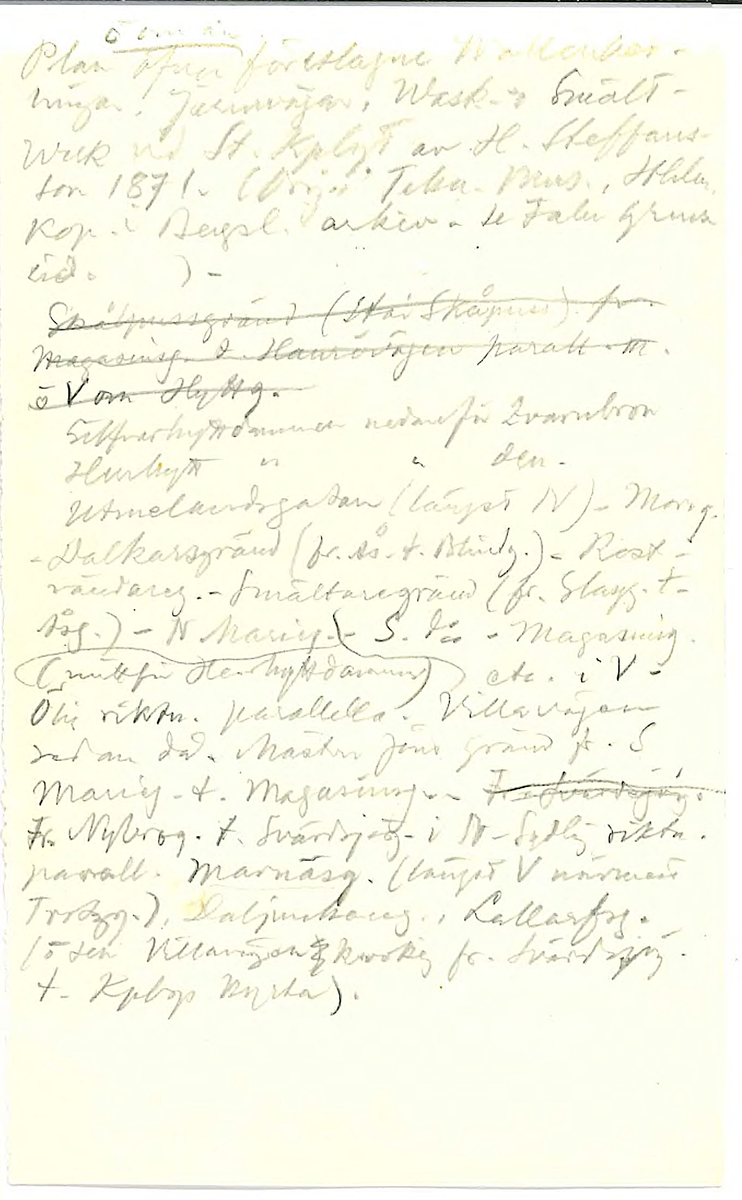 ö om ån
Plan öfver föreslagne Wattenled-
ningar, Järnvägar, Wask- o Smält-
Werk vid St. Kpbgt av H. Steffans-
son 1871. (Orig. i Tekn. Mus., Sthlm,
Kop. i Bergsl. arkiv - se Falu Gruva
)-
(står Skåpuss) fr.
Magasinsg. t. Hanrövägen parall. m.
ö V om Hyttg.
Silfverhyttdammen nedanför Kvarnbron
Herrhytt " " den -
Utmelandsgatan (längst N) - Morag.
- Dalkarsgränd (fr. Ås- t. Blindg.) - Rost-
vändareg. - Smältaregränd (fr. Slagg. t-
Åsg.) - N Marieg. - S. d:o - Magasinsg.
(mittför Herrhyttdammen) etc. i V-
Östlig riktn. parallella. Villavägen
redan då. Mäster Jöns Gränd fr. S
Marieg - t. Magasinsg. - Fr. Svärdsjög.
Fr. Nybrog. t. Svärdsjög - i N-Sydlig riktn.
parall. Marnäsg. (längst V närmast
Trotzg.), Daljunkareg., Lallarfsg.
(ö den Villavägen krokig fr. Svärdsjög.
t- Kpbgs Kyrka).